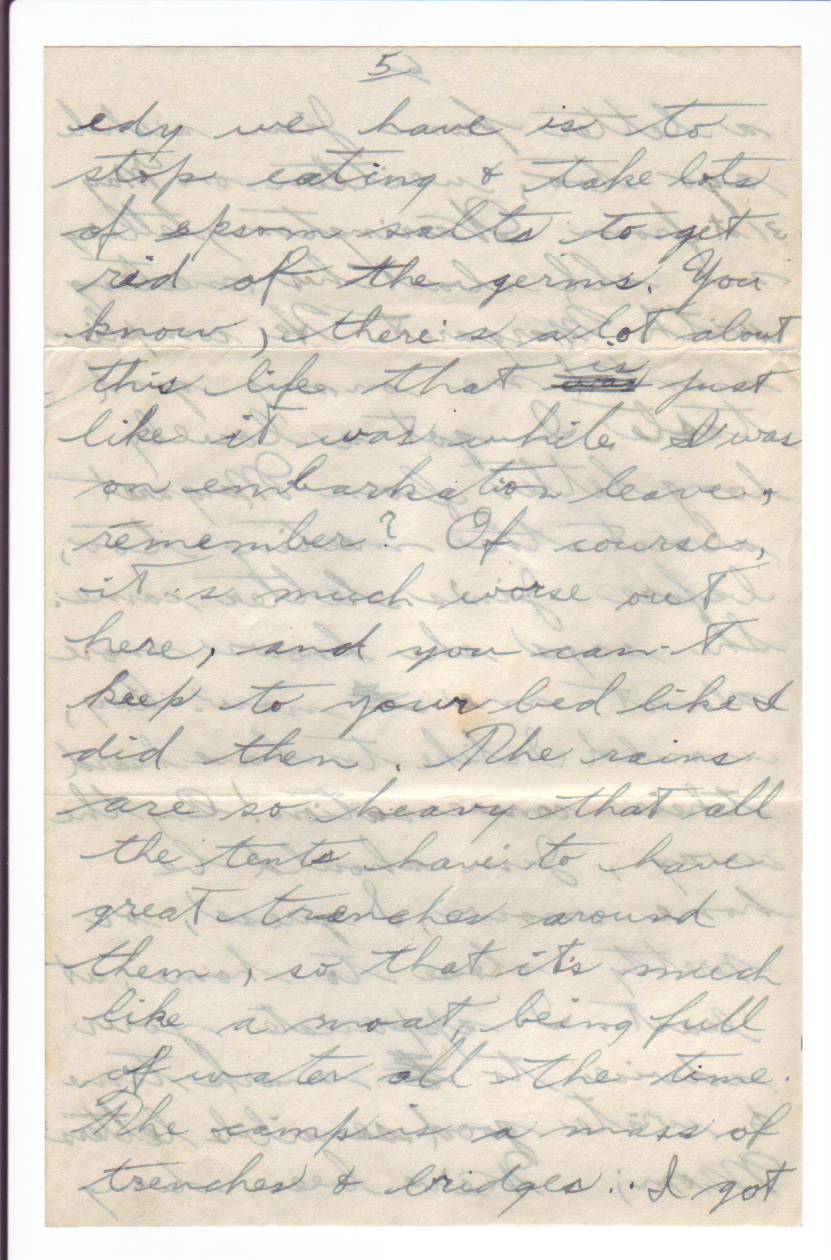 5
edy we have is to
stop eating & take lots
of epsom salts to get
rid of the germs. You
know, there's a lot about
this life that is just
like it was while I was
on embarkation leave,
remember? Of course,
it's much worse out
here, and you can't
keep to your bed like I
did then. The rains
are so heavy that all
the tents have to have
great trenches around
them, so that it's much
like a moat, being full
of water all the time.
The camp is a mass of
trenches & bridges.. I got